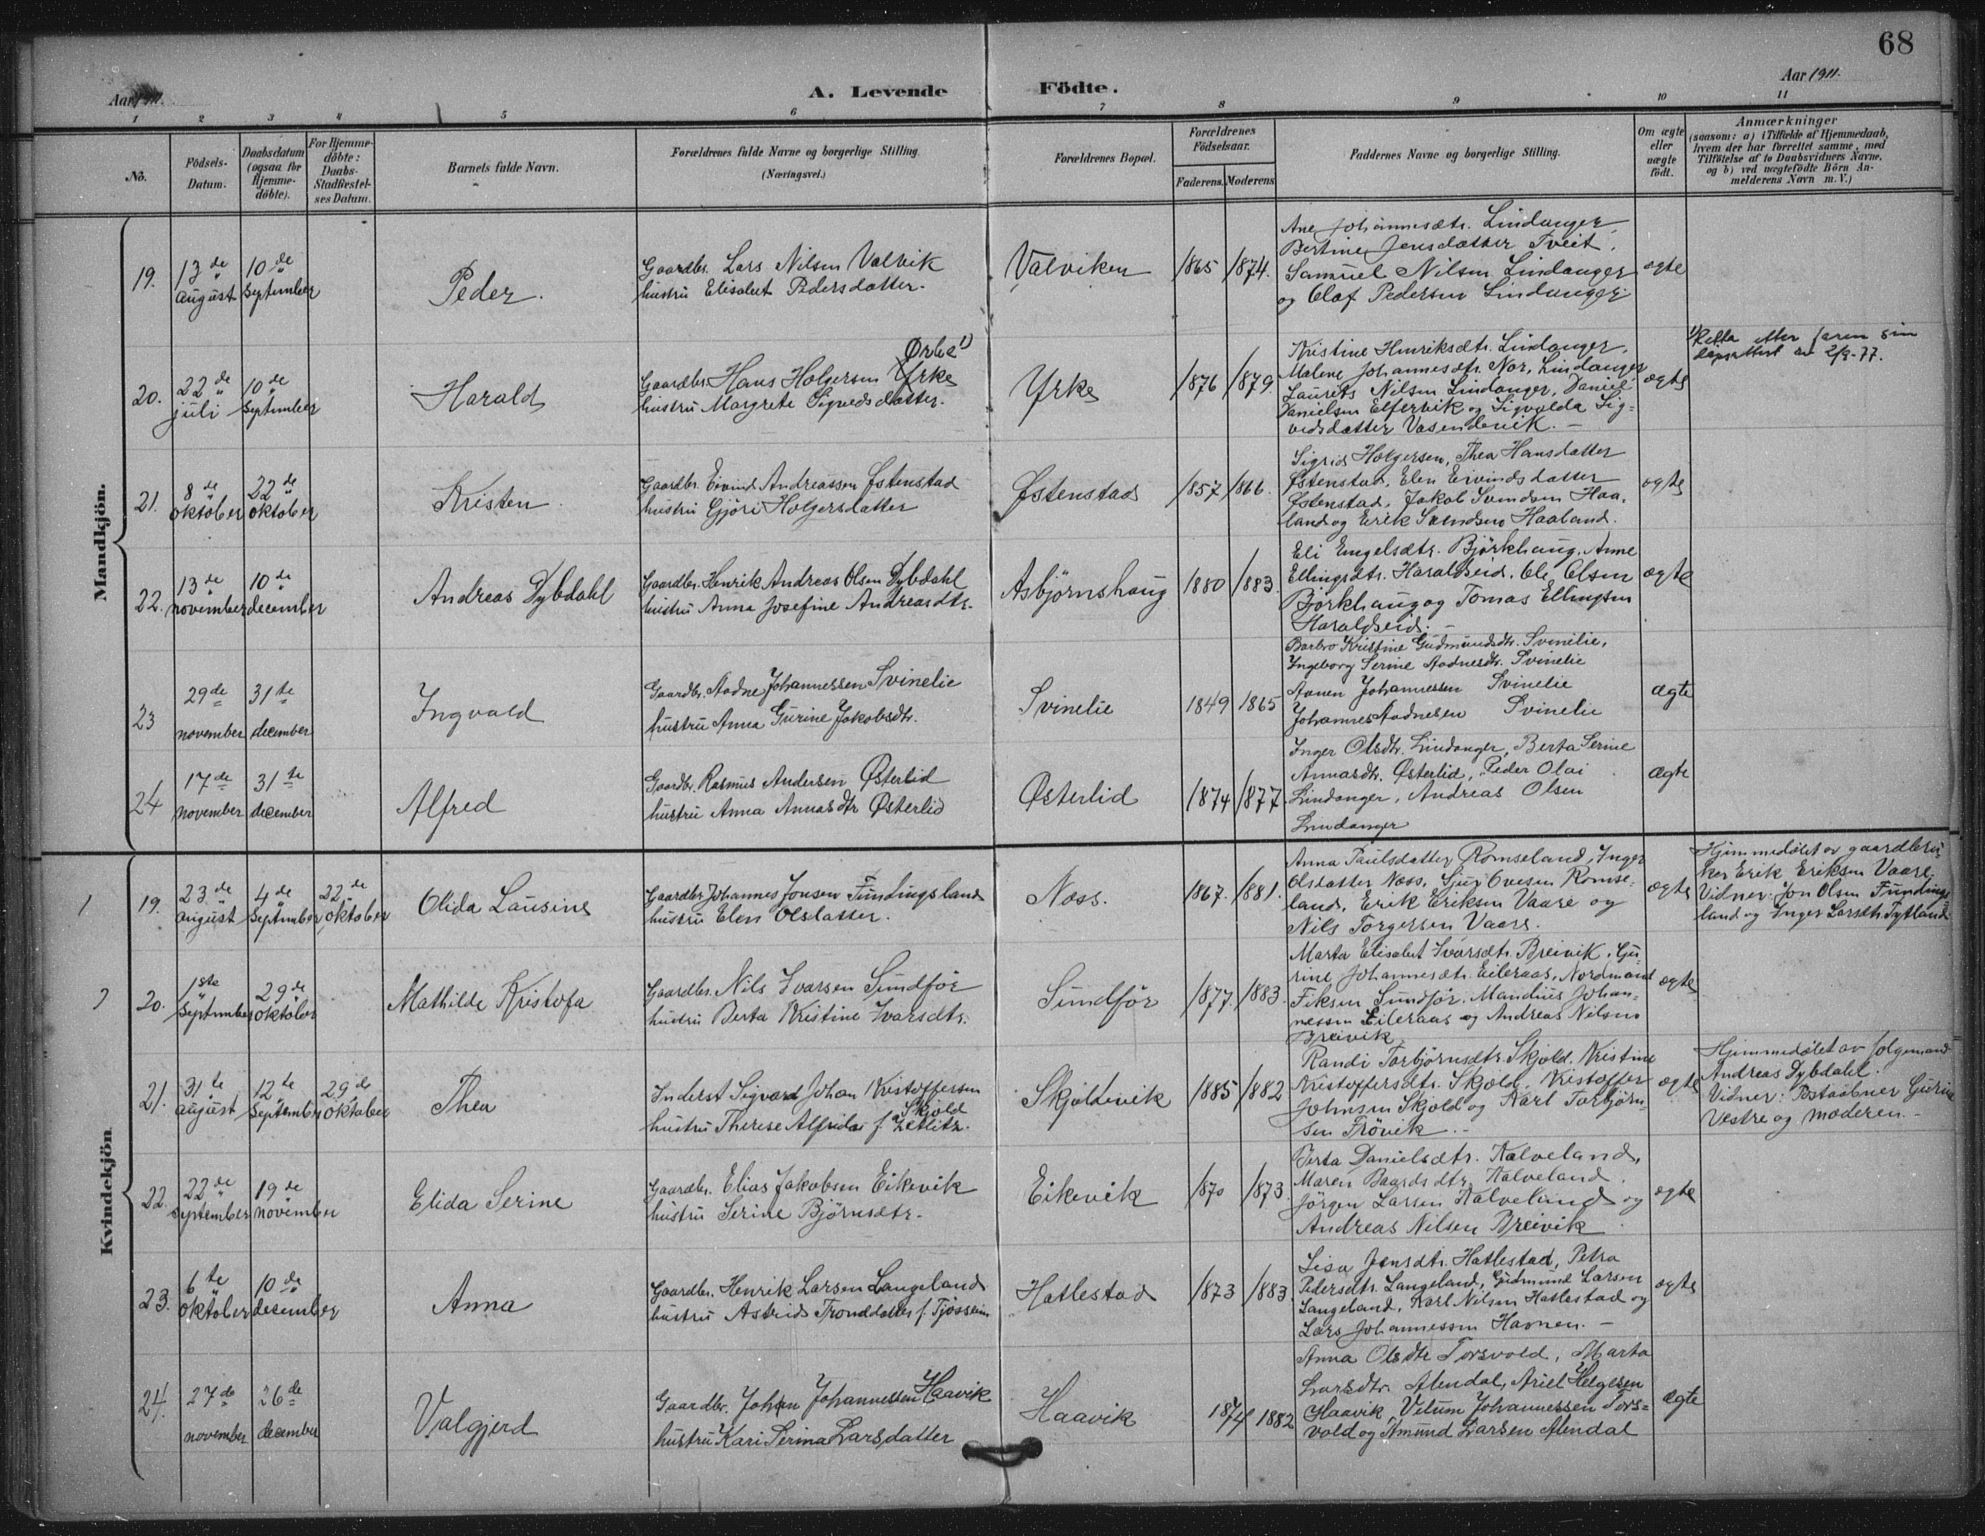 68
Aar 1911.
A. Levende Födte.
Aar 1911.
1 2 3 4 5 6 7 8 9 10 11
No.
Födsels-Datum.
Daabsdatum (ogsaa för Hjemmedöbte).
For Hjemmedöbte: Daabs-Stadfæstelses Datum.
Barnets fulde Navn.
Forældrenes fulde Navne og borgerlige Stilling.
(Næringsvei.)
Forældrenes Bopæl.
Forældrenes Födselsaar.
Faderens. Moderens.
Faddernes Navne og borgerlige Stilling.
Om ægte eller uægte födt.
Anmærkninger
(saasom: a) i Tilfælde af Hjemmedaab,
hvem der har forrettet samme, med
Tilföielse af to Daabsvidners Navne,
og b) ved uægtefödte Börn Anmelderens Navn m. V.)
Mandkjön.
19.
13de august
10de september
Peder.
Gaardbr. Lars Nilsen Valvik
hustru Elisabet Pedersdatter.
Valviken
1865
1874.
Ane Johannesdtr. Lindanger,
Bertine Jensdatter Tveit,
Samuel Nilsen Lindanger
og Olaf Pedersen Lindanger
ægte
20.
22de juli
10de september
Harald
Ørke 1)
Gaardbr. Hans Holgersen Yrke
hustru Margrete Sigvedsdatter.
Yrke
1876
1879.
Kristine Henriksdtr. Lindanger,
Malene Johannesdtr. Nor. Lindanger
Laurits Nilsen Lindanger, Daniel
Danielsen Elfervik og Sigvalda Sig-
vedsdatter Vasendevik.
ægte
1) Retta etter faren sin
dåpsattest av 2/9-77.
21.
8de oktober
22de oktober
Kristen
Gaardbr. Eivind Andreassen Østenstad
hustru Gjøri Holgersdatter
Østenstad
1857
1866.
Sigrid Holgersen, Thea Hansdatter
Østenstad, Elen Eivindsdatter
Østenstad, Jakob Svendsen Haa-
land og Erik Svendsen Haaland.
ægte
22.
13de november
10de december
Andreas Dybdahl
Gaardbr. Henrik Andreas Olsen Dybdahl
hustru Anna Josefine Andreasdtr.
Asbjørnshaug
1880
1883.
Eli Engelsdtr. Bjørkhaug, Anne
Ellingsdtr. Haraldseid, Ole Olsen
Bjørkhaug og Tomas Ellingsen
Haraldseid.
ægte
23
29de november
31te december
Ingvald
Gaardbr. Aadne Johannessen Svinelie
hustru Anna Gurine Jakobsdtr.
Svinelie
1849
1865
Barbro Kristine Gudmundsdtr. Svinelie,
Ingeborg Serine Aadnesdtr. Svinelie
Aanen Johannessen Svinelie
Johannes Aadnesen Svinelie
ægte
24
17de november
31te december
Alfred
Gaardbr. Rasmus Andersen Østerlid
hustru Anna Annasdtr Østerlid
Østerlid
1874
1877.
Inger Olsdtr. Lindanger, Berta Serine
Annasdtr. Østerlid, Peder Olai
Lindanger, Andreas Olsen
Lindanger
ægte
Kvindekjön.
1
19.
23.de august
4de september
22de oktober
Olida Lausine
Gaardbr Johannes Jonsen Fundingsland
hustru Elen Olsdatter.
Næss.
1867.
1881.
Anna Paulsdatter Romseland, Inger
Olsdatter Næss, Sjur Ovesen Romse-
land, Erik Eriksen Vaare og
Nils Torgersen Vaare.
ægte
Hjemmedøbt av gaardbru-
ker Erik Eriksen Vaare
Vidner: Jon Olsen Fundings-
land og Inger Larsdtr. Tytland
20.
1ste september
29de oktober
Mathilde Kristofa
Gaardbr. Nils Ivarsen Sundfør
hustru Berta Kristine Ivarsdtr.
Sundför
1877.
1883.
Marta Elisabet Ivarsdtr. Breivik, Gu-
rine Johannesdtr. Eileraas, Nordmand
Eiksen Sundför, Mandius Johan-
nessen Eileraas og Andreas Nilsen
Breivik
ægte
21.
31te august
12te september
29de oktober
Thea
Inderst Sigvard Johan Kristoffersen
Skjold
hustru Therese Alfrida f. Zetlitz.
Skjoldevik
1885
1882
Randi Torbjørnsdtr. Skjold, Kristine
Kristoffersdtr. Skjold, Kristoffer
Johnsen Skjold og Karl Torbjørn-
sen Trövik.
ægte
Hjemmedøbt av følgemand
Andreas Dybdahl.
Vidner: Postaabner Gurine
Vestre og moderen.
22.
22de september
19de november
Elida Serine
Gaardbr. Elias Jakobsen Eikevik
hustru Serine Bjørnsdtr.
Eikevik
1870
1873.
Berta Danielsdtr. Kalveland,
Maren Baardsdtr. Kalveland,
Jörgen Larsen Kalveland og
Andreas Nilsen Breivik
ægte
23.
6te oktober
10de desember
Anna
Gaardbr. Henrik Larsen Langeland
hustru Astrid Tronddatter f. Tjøsseim
Hatlestad
1873
1883.
Lisa Jensdtr. Hatlestad, Petra
Pedersdtr. Langeland, Gudmund Larsen
Langeland, Karl Nilsen Hatlestad og
Lars Johannessen Havnen.
ægte
24.
27de november
26de december
Valgjerd
Gaardbr. Johan Johannessen Haavik
hustru Kari Serina Larsdatter
Haavik
1874
1882
Anna Olsdtr Torsvold, Marta
Larsdtr. Alendal, Ariel Helgesen
Haavik, Velum Johannessen Tors-
vold og Amund Larsen Alendal
ægte